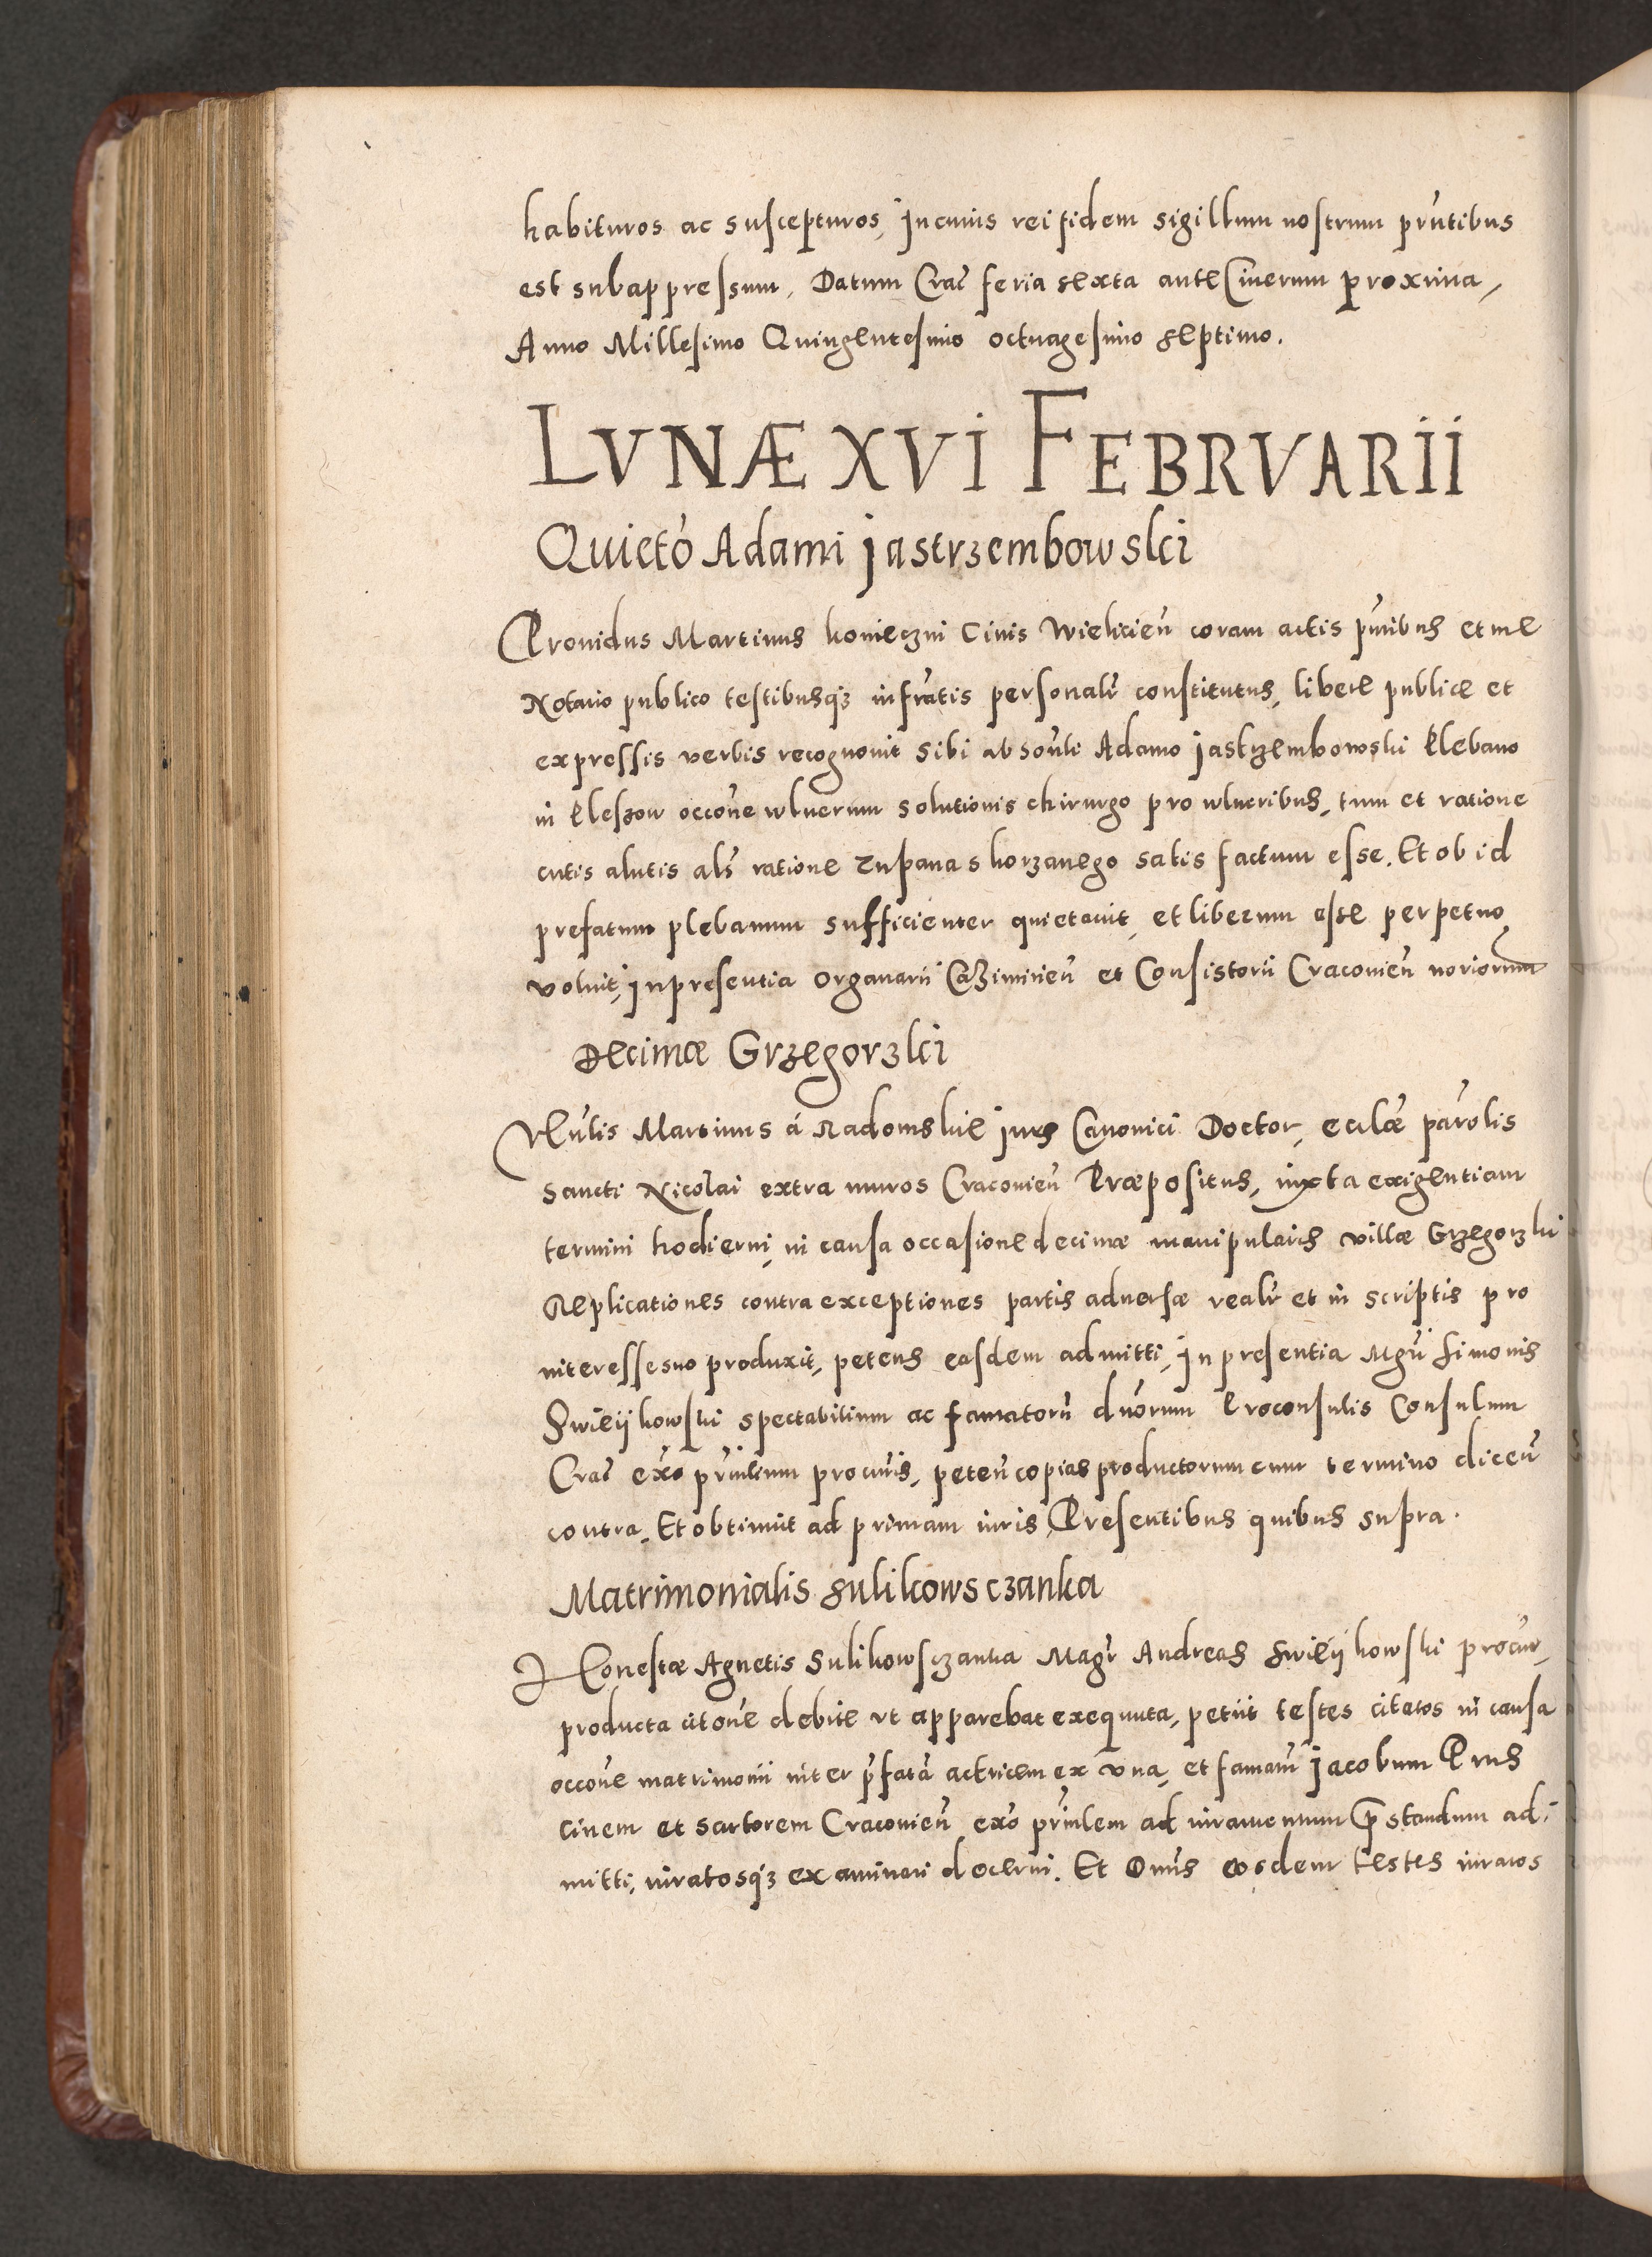 habituros ac suscepturos, In cuius rei fidem sigillum nostrum pn̄tibus
est subappressum. Datum Crac̄ feria sexta ante Cinerum proxima,
Anno Millesimo Quingentesimo octuagesimo septimo.
LVNÆ XVI FEBRVARII
Quietō Adami Jastrzembowski
Prouidus Martinus konieczni Ciuis Wielicien̄ coram actis pn̄tibus et me
Notario publico testibusq3 infratis personalr̄ constitutus, libere publice et
expressis verbis recognouit sibi ab
Adamo Jastrzembowski Plebano
in Pleszow occōne wlnerum solutionis chirurgo pro wlneribus, tum et ratione
cutis alutis als̄ ratione zupana skorzanego satis factum esse. Et ob id
prefatum plebanum sufficienter quietauit, et liberum esse perpetuo
voluit, In presentia organarii Cazimirien̄ et Consistorii Craconien̄ noriorum
Decimæ Grzegorzki
Vēn̄lis Martinus á Radomskie Juris Canonici Doctor, ecclæ parōlis
sancti Nicolai extra muros Craconien̄ Præpositus, iuxta exigentiam
termini hodierni, in causa occasione decimæ manipularis villæ Grzegorzki
Replicationes contra exceptiones partis aduersæ realr̄ et in scriptis pro
interesse suo produxit, petens easdem admitti, In presentia Mgrī Simonis
Swieijkowski spectabilium ac famatorū dnōrum Proconsulis Consulum
Crac̄ exō prīncīlium procuris, peten̄ copias productorum cum termino dicen̄
contra. Et obtinuit ad primam iuris, Presentibus quibus supra.
Matrimonialis Sulikowsczanka
Honestæ Agnetis Sulikowsczanka Magr̄ Andreas Swieijkowski procur,
producta citōne debite vt apparebat exequuta, petiit testes citatos in causa
occōne matrimonii inter p̄fatā actricem ex vna, et famatū Jacobum Prus
ciuem et sartorem Craconien̄ exō prīncīlem ad iuramentum præstandum ad:
mitti, iuratosq3 examinari decerni. Et Dn̄us eosdem testes iuratos